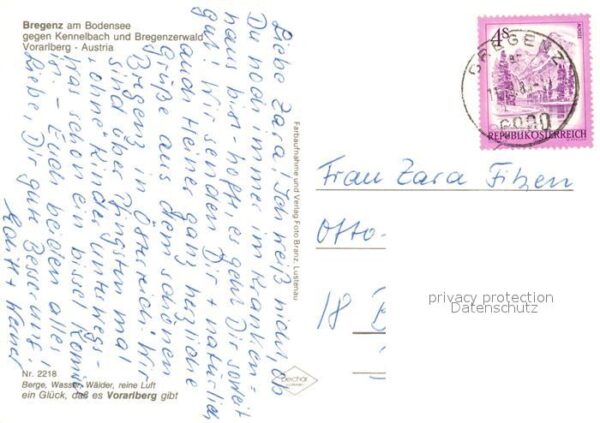 Bregenz am Bodensee
gegen Kennelbach und Bregenzerwald
Vorarlberg - Austria
Liebe Zara! Ich weiß nicht, ob
Du noch immer im Kranken=
haus bist - hoffe, es geht Dir soweit
gut! Wir senden Dir + natürlich
auch Heiner ganz herzliche
Grüße aus dem schönen
Bregenz in Österreich! Wir
sind über Pfingsten mal
"ohne" Kinder unterwegs -
schon ein bisse
Euch beiden alles
Liebe, Dir gute Besserung!
Nr. 2218
Berge, Wasser, Wälder, reine Luft
ein Glück, daß es Vorarlberg gibt
Farbaufnahme und Verlag Foto Branz, Lustenau
4S
REPUBLIK ÖSTERREICH
BREGENZ
6900
Frau Zara Fitzen
Otto-
18 B
privacy protection
Datenschutz